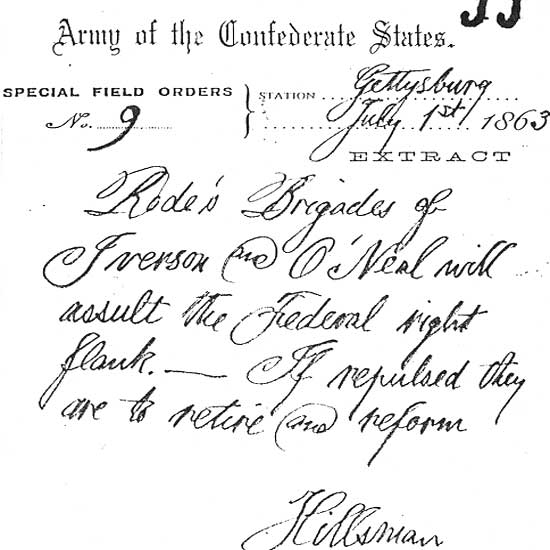 Army of the Confederate States.
SPECIAL FIELD ORDERS
No. 9
STATION Gettysburg
July 1st 1863
EXTRACT
Rode's Brigades of
Iverson and O'Neal will
assult the Federal right
flank. — If repulsed they
are to retire and reform
Hillsman